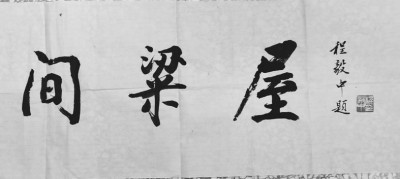 屋梁间
程毅中題